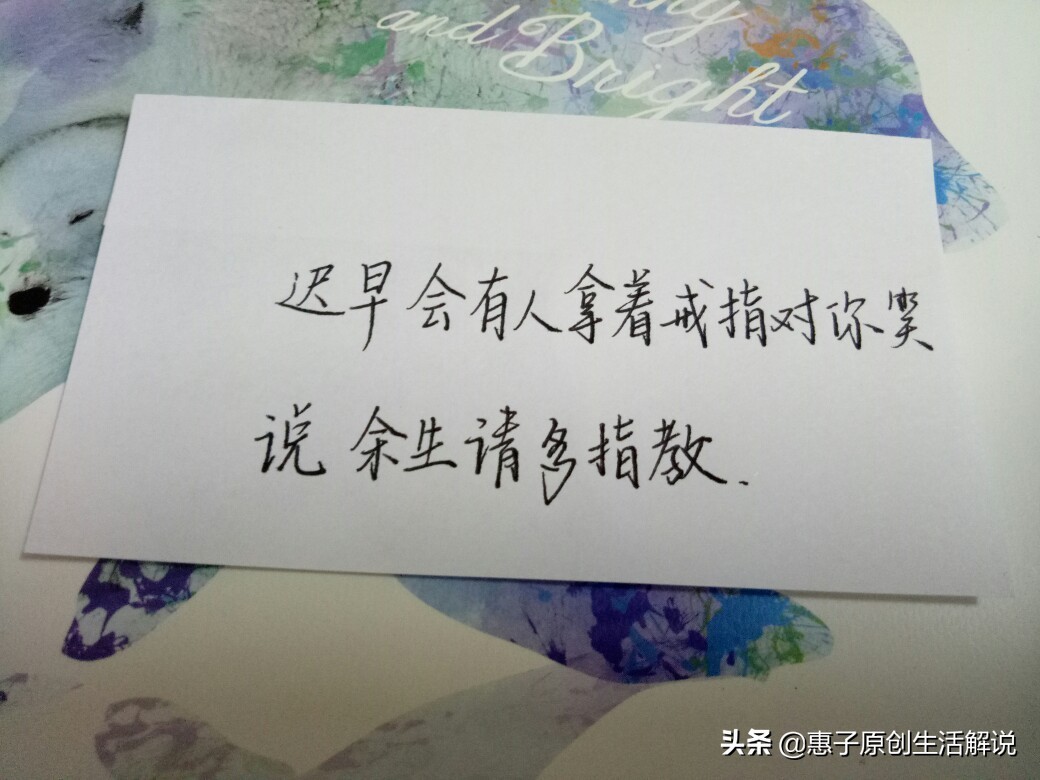 and Bright
迟早会有人拿着戒指对你笑
说 余生请多指教.
头条 @惠子原创生活解说